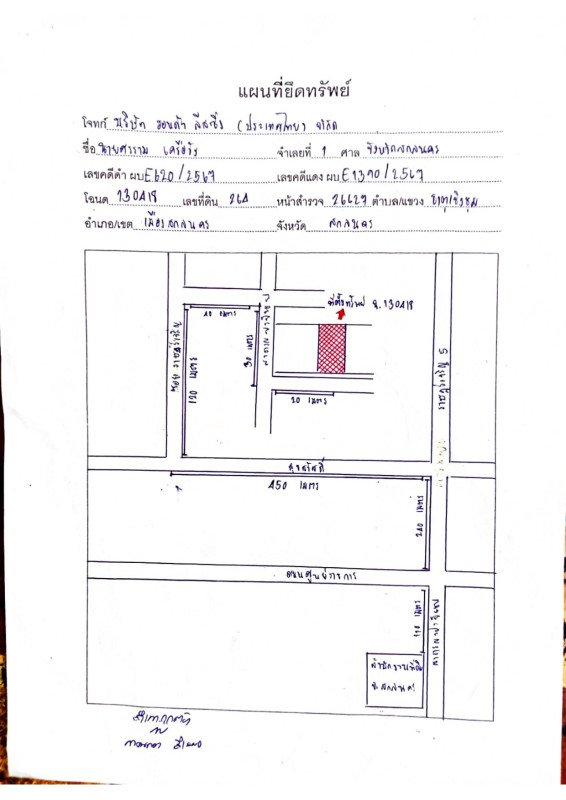 แผนที่ยึดทรัพย์
โจทก์ บริษัท ฮอนด้า ลีสซิ่ง (ประเทศไทย) จำกัด
ชื่อ นายศราราม เครือวัง จำเลยที่ 1 ศาล จังหวัดสกลนคร
เลขคดีดำ ผบ E620/2567 เลขคดีแดง ผบ E1390/2567
โฉนด 130418 เลขที่ดิน 264 หน้าสำรวจ 26627 ตำบล/แขวง ธาตุเชิงชุม
อำเภอ/เขต เมืองสกลนคร จังหวัด สกลนคร
ที่ตั้งทรัพย์ ฉ. 130418
40 เมตร
30 เมตร
120 เมตร
ถนน ราษฎร์เจริญ
20 เมตร
ราษฎร์เจริญ 5
450 เมตร
240 เมตร
ถนนศูนย์ราชการ
110 เมตร
สำนักงานที่ดิน
จ. สกลนคร